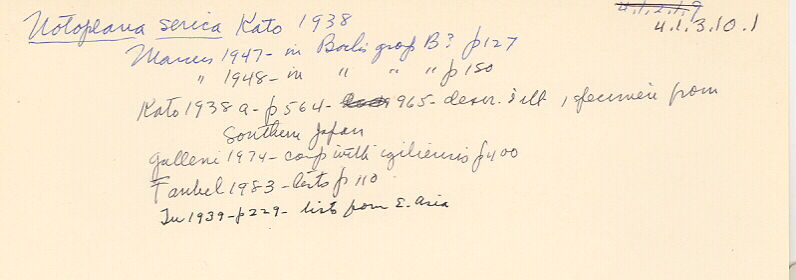 4.1.2.1.9
Notoplana serica Kato 1938
4.1.3.10.1
Marcus 1947- in Bock's group B? p127
" 1948- in " " " p 150
Kato 1938 a - p 564- 965- descr. & ill, specimen from
Southern Japan
Galleni 1974- comp with igiliensis p400
Faubel 1983- lists p 110
Tu 1939- p229- lists from E. Asia